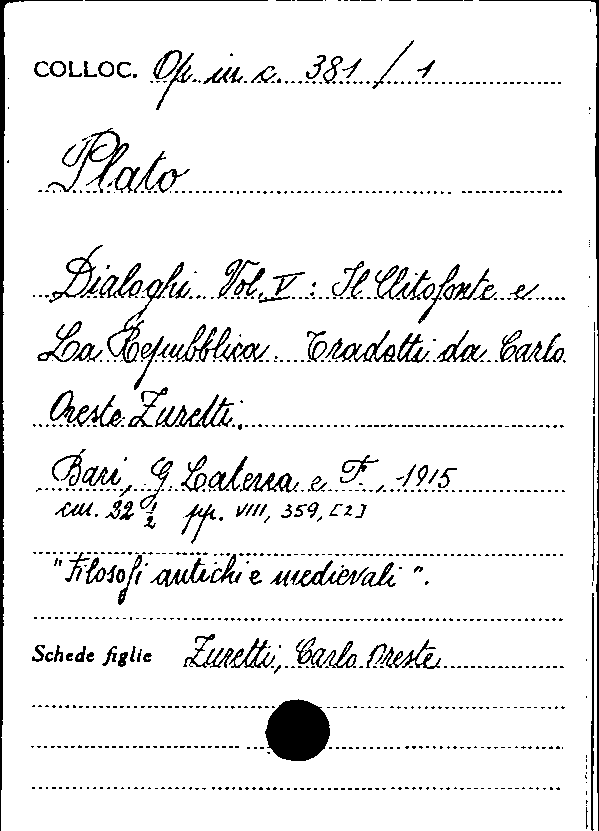 COLLOC. Op. in c. 381 / 1
Plato
Dialoghi. Vol. V : Il Clitofonte e
La Repubblica. Tradotti da Carlo
Oreste Zuretti.
Bari, G. Laterza e F., 1915
cm. 22 ½ pp. VIII, 359, [2]
"Filosofi antichi e medievali".
Schede figlie Zuretti, Carlo Oreste